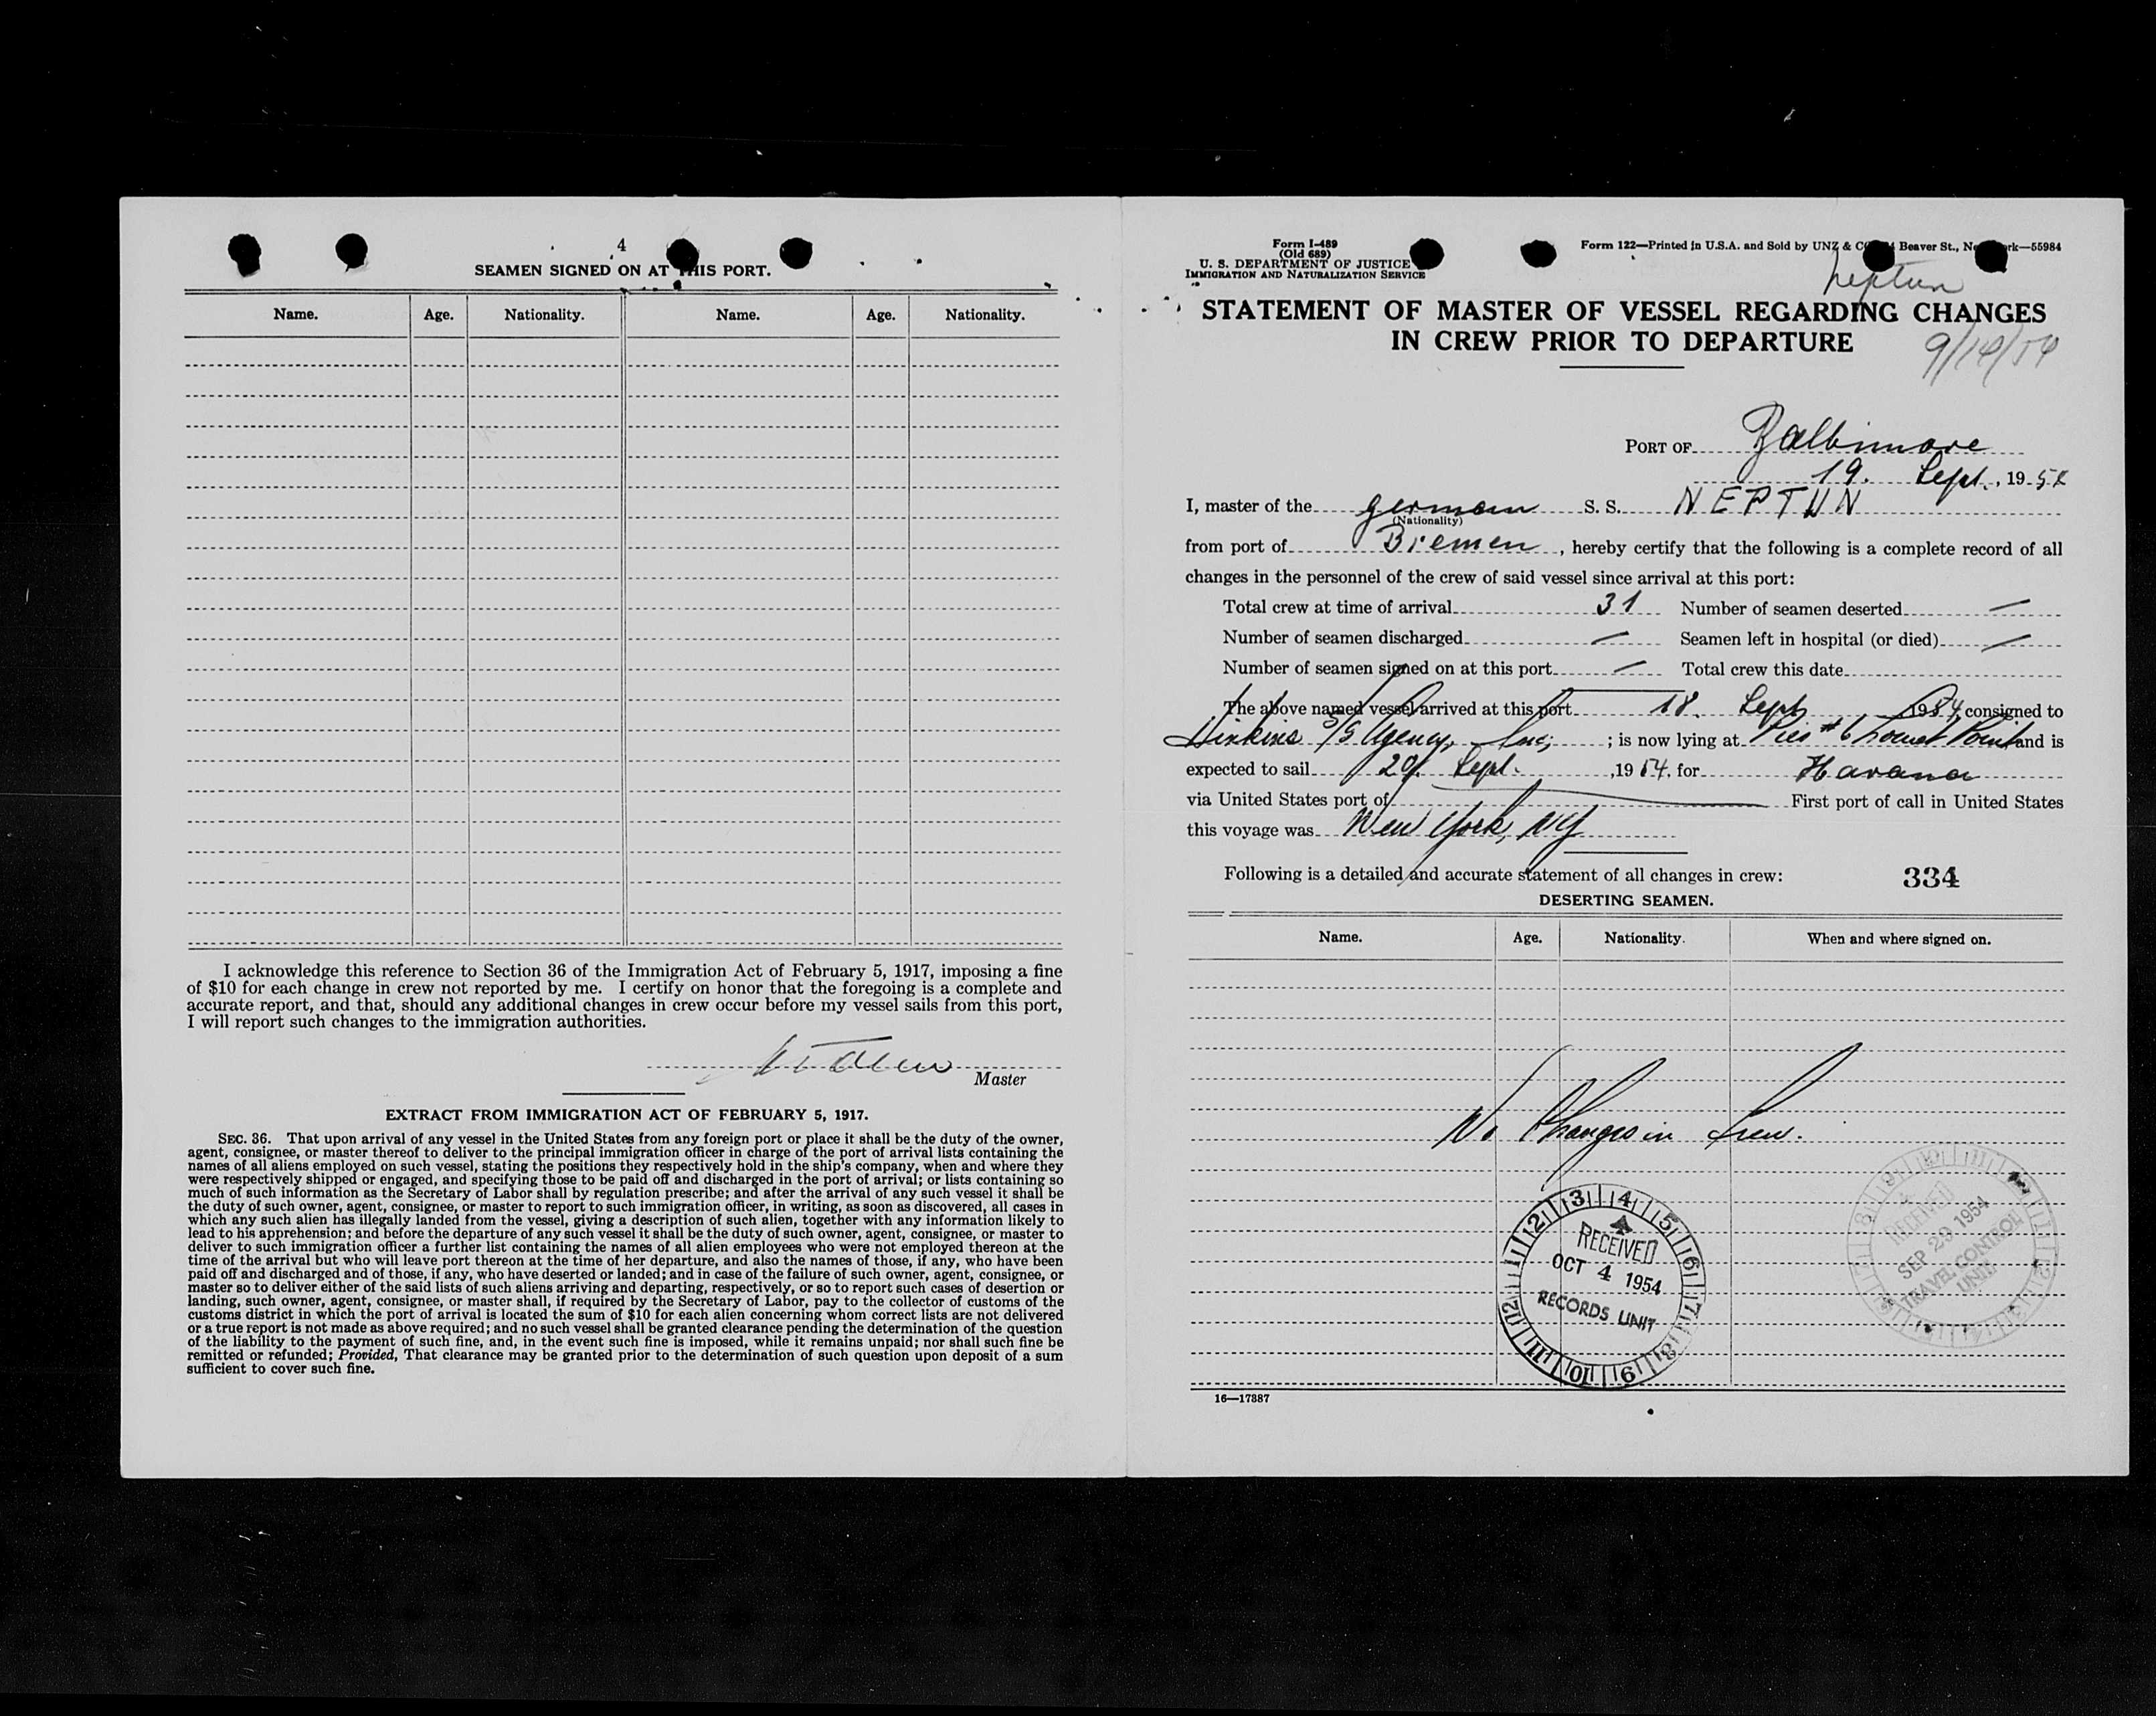 4
SEAMEN SIGNED ON AT THIS PORT.
Name. Age. Nationality. Name. Age. Nationality.
I acknowledge this reference to Section 36 of the Immigration Act of February 5, 1917, imposing a fine
of $10 for each change in crew not reported by me. I certify on honor that the foregoing is a complete and
accurate report, and that, should any additional changes in crew occur before my vessel sails from this port,
I will report such changes to the immigration authorities.
Master
EXTRACT FROM IMMIGRATION ACT OF FEBRUARY 5, 1917.
SEC. 36. That upon arrival of any vessel in the United States from any foreign port or place it shall be the duty of the owner,
agent, consignee, or master thereof to deliver to the principal immigration officer in charge of the port of arrival lists containing the
names of all aliens employed on such vessel, stating the positions they respectively hold in the ship's company, when and where they
were respectively shipped or engaged, and specifying those to be paid off and discharged in the port of arrival; or lists containing so
much of such information as the Secretary of Labor shall by regulation prescribe; and after the arrival of any such vessel it shall be
the duty of such owner, agent, consignee, or master to report to such immigration officer, in writing, as soon as discovered, all cases in
which any such alien has illegally landed from the vessel, giving a description of such alien, together with any information likely to
lead to his apprehension; and before the departure of any such vessel it shall be the duty of such owner, agent, consignee, or master to
deliver to such immigration officer a further list containing the names of all alien employees who were not employed thereon at the
time of the arrival but who will leave port thereon at the time of her departure, and also the names of those, if any, who have been
paid off and discharged and of those, if any, who have deserted or landed; and in case of the failure of such owner, agent, consignee, or
master so to deliver either of the said lists of such aliens arriving and departing, respectively, or so to report such cases of desertion or
landing, such owner, agent, consignee, or master shall, if required by the Secretary of Labor, pay to the collector of customs of the
customs district in which the port of arrival is located the sum of $10 for each alien concerning whom correct lists are not delivered
or a true report is not made as above required; and no such vessel shall be granted clearance pending the determination of the question
of the liability to the payment of such fine, and, in the event such fine is imposed, while it remains unpaid; nor shall such fine be
remitted or refunded; Provided, That clearance may be granted prior to the determination of such question upon deposit of a sum
sufficient to cover such fine.
Form I-489
(Old 689)
U. S. DEPARTMENT OF JUSTICE
IMMIGRATION AND NATURALIZATION SERVICE
Form 122—Printed in U.S.A. and Sold by UNZ & Beaver St., —55984
Neptun
STATEMENT OF MASTER OF VESSEL REGARDING CHANGES
IN CREW PRIOR TO DEPARTURE
9/14/54
PORT OF Baltimore
19. Sept., 1954
I, master of the german S. S. NEPTUN
(Nationality)
from port of Bremen, hereby certify that the following is a complete record of all
changes in the personnel of the crew of said vessel since arrival at this port:
Total crew at time of arrival 31 Number of seamen deserted —
Number of seamen discharged — Seamen left in hospital (or died) —
Number of seamen signed on at this port — Total crew this date
The above named vessel arrived at this port 18. Sept 1954, consigned to
Dinkins S/S Agency, Inc; ; is now lying at Pier #6 Locust Point and is
expected to sail 20. Sept. ,1954. for Havana
via United States port of — First port of call in United States
this voyage was New York, NY
Following is a detailed and accurate statement of all changes in crew: 334
DESERTING SEAMEN.
Name. Age. Nationality. When and where signed on.
No Changes in Crew.
1 2 3 4 5 6 7 8 9 10 11 12
RECEIVED
OCT 4 1954
RECORDS UNIT
RECEIVED
SEP 20 1954
TRAVEL CONTROL
UNIT
16—17887